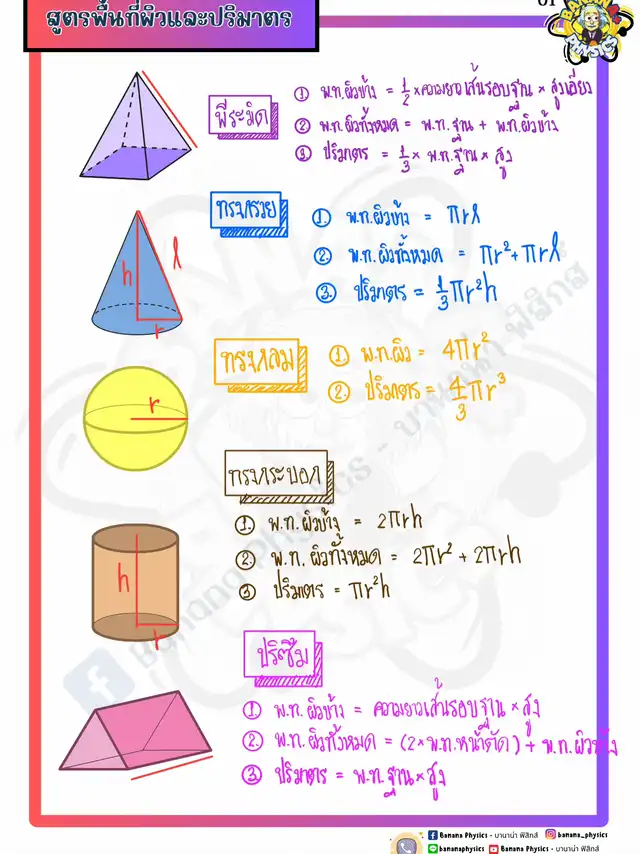 สูตรพื้นที่ผิวและปริมาตร
BANANA
PHYSICS
พีระมิด
① พ.ท.ผิวข้าง = 1/2 × ความยาวเส้นรอบฐาน × สูงเอียง
② พ.ท.ผิวทั้งหมด = พ.ท.ฐาน + พ.ท.ผิวข้าง
③ ปริมาตร = 1/3 × พ.ท.ฐาน × สูง
ทรงกรวย
①. พ.ท.ผิวข้าง = πrl
②. พ.ท.ผิวทั้งหมด = πr² + πrl
③. ปริมาตร = 1/3 πr²h
h
l
r
ทรงกลม
① พ.ท.ผิว = 4πr²
②. ปริมาตร = 4/3 πr³
r
ทรงกระบอก
①. พ.ท.ผิวข้าง = 2πrh
②. พ.ท.ผิวทั้งหมด = 2πr² + 2πrh
③ ปริมาตร = πr²h
h
r
ปริซึม
① พ.ท.ผิวข้าง = ความยาวเส้นรอบฐาน × สูง
②. พ.ท.ผิวทั้งหมด = (2 × พ.ท.หน้าตัด) + พ.ท.ผิวข้าง
③ ปริมาตร = พ.ท.ฐาน × สูง
Banana Physics - บานาน่า ฟิสิกส์
Banana Physics - บานาน่า ฟิสิกส์ banana_physics
bananaphysics Banana Physics - บานาน่า ฟิสิกส์